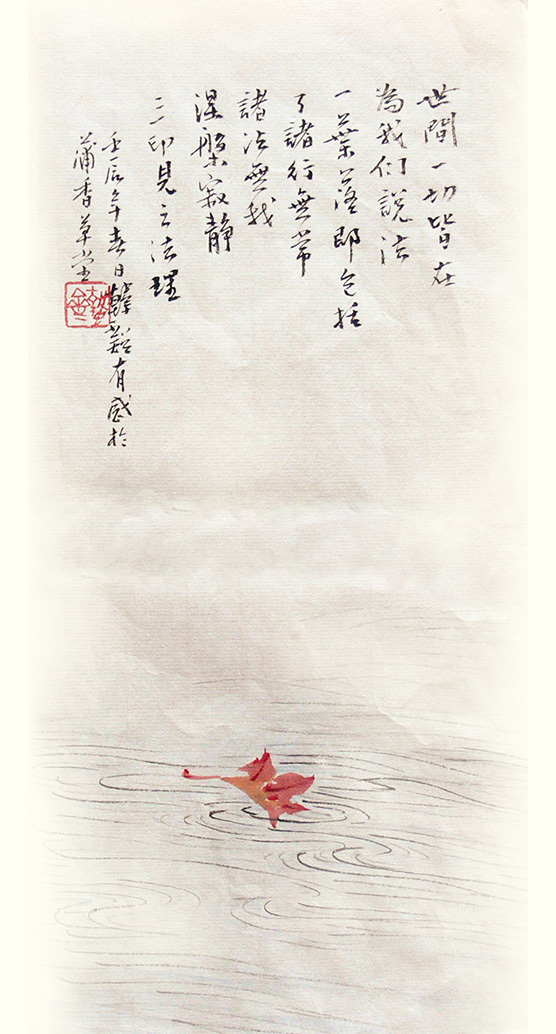 世間一切皆在
為我们說法
一葉落即包括
了諸行無常
諸法無我
涅槃寂靜
三印見之法理
壬辰年春日韓谿有感於
蒲香草堂